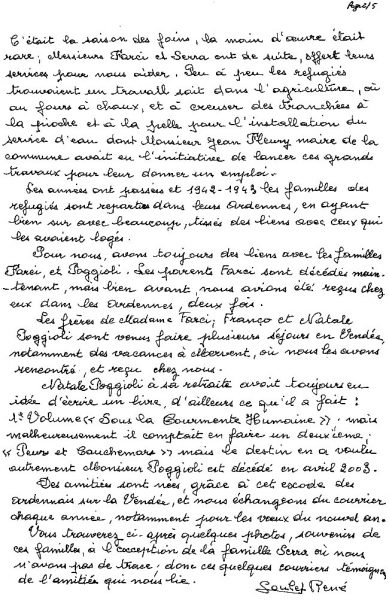 Page 2/5
C'était la saison des foins, la main d'œuvre était
rare; Messieurs Farci et Serra ont de suite, offert leurs
services pour nous aider. Peu à peu les refugiés
trouvaient un travail soit dans l'agriculture, où
au fours à chaux, et à creuser des tranchées à
la pioche et à la pelle pour l'installation du
service d'eau dont Monsieur Jean Fleury maire de la
commune avait eu l'initiative de lancer ces grands
travaux pour leur donner un emploi.
Les années ont passées et 1942-1943 les familles des
refugiés sont reparties dans leurs Ardennes, en ayant
bien sur avec beaucoup, tissés des liens avec ceux qui
les avaient logés.
Pour nous, avons toujours des liens avec les familles
Farci, et Poggioli. Les parents Farci sont décédés main-
-tenant, mais bien avant, nous avions été reçus chez
eux dans les Ardennes, deux fois.
Les frères de Madame Farci; Franco et Natale
Poggioli sont venus faire plusieurs séjours en Vendée,
notamment des vacances à Mervent, où nous les avons
rencontré, et reçu chez nous.
Natale Poggioli à sa retraite avait toujours eu
idée d'écrire un livre, d'ailleurs ce qu'il a fait:
1er Volume << Sous la Tourmente Humaine >>, mais
malheureusement il comptait en faire un deuxième;
<< Peurs et Cauchemars >> mais le destin en a voulu
autrement Monsieur Poggioli est décédé en avril 2003.
Des amitiés sont nées, grâce à cet exode des
Ardennais sur la Vendée, et nous échangeons du courrier
chaque année, notamment pour les vœux du nouvel an.
Vous trouverez ci-après quelques photos, souvenirs de
ces familles, à l'exception de la famille Serra où nous
n'avons pas de trace; donc ces quelques courriers témoignent
de l'amitiés qui nous lie.
René